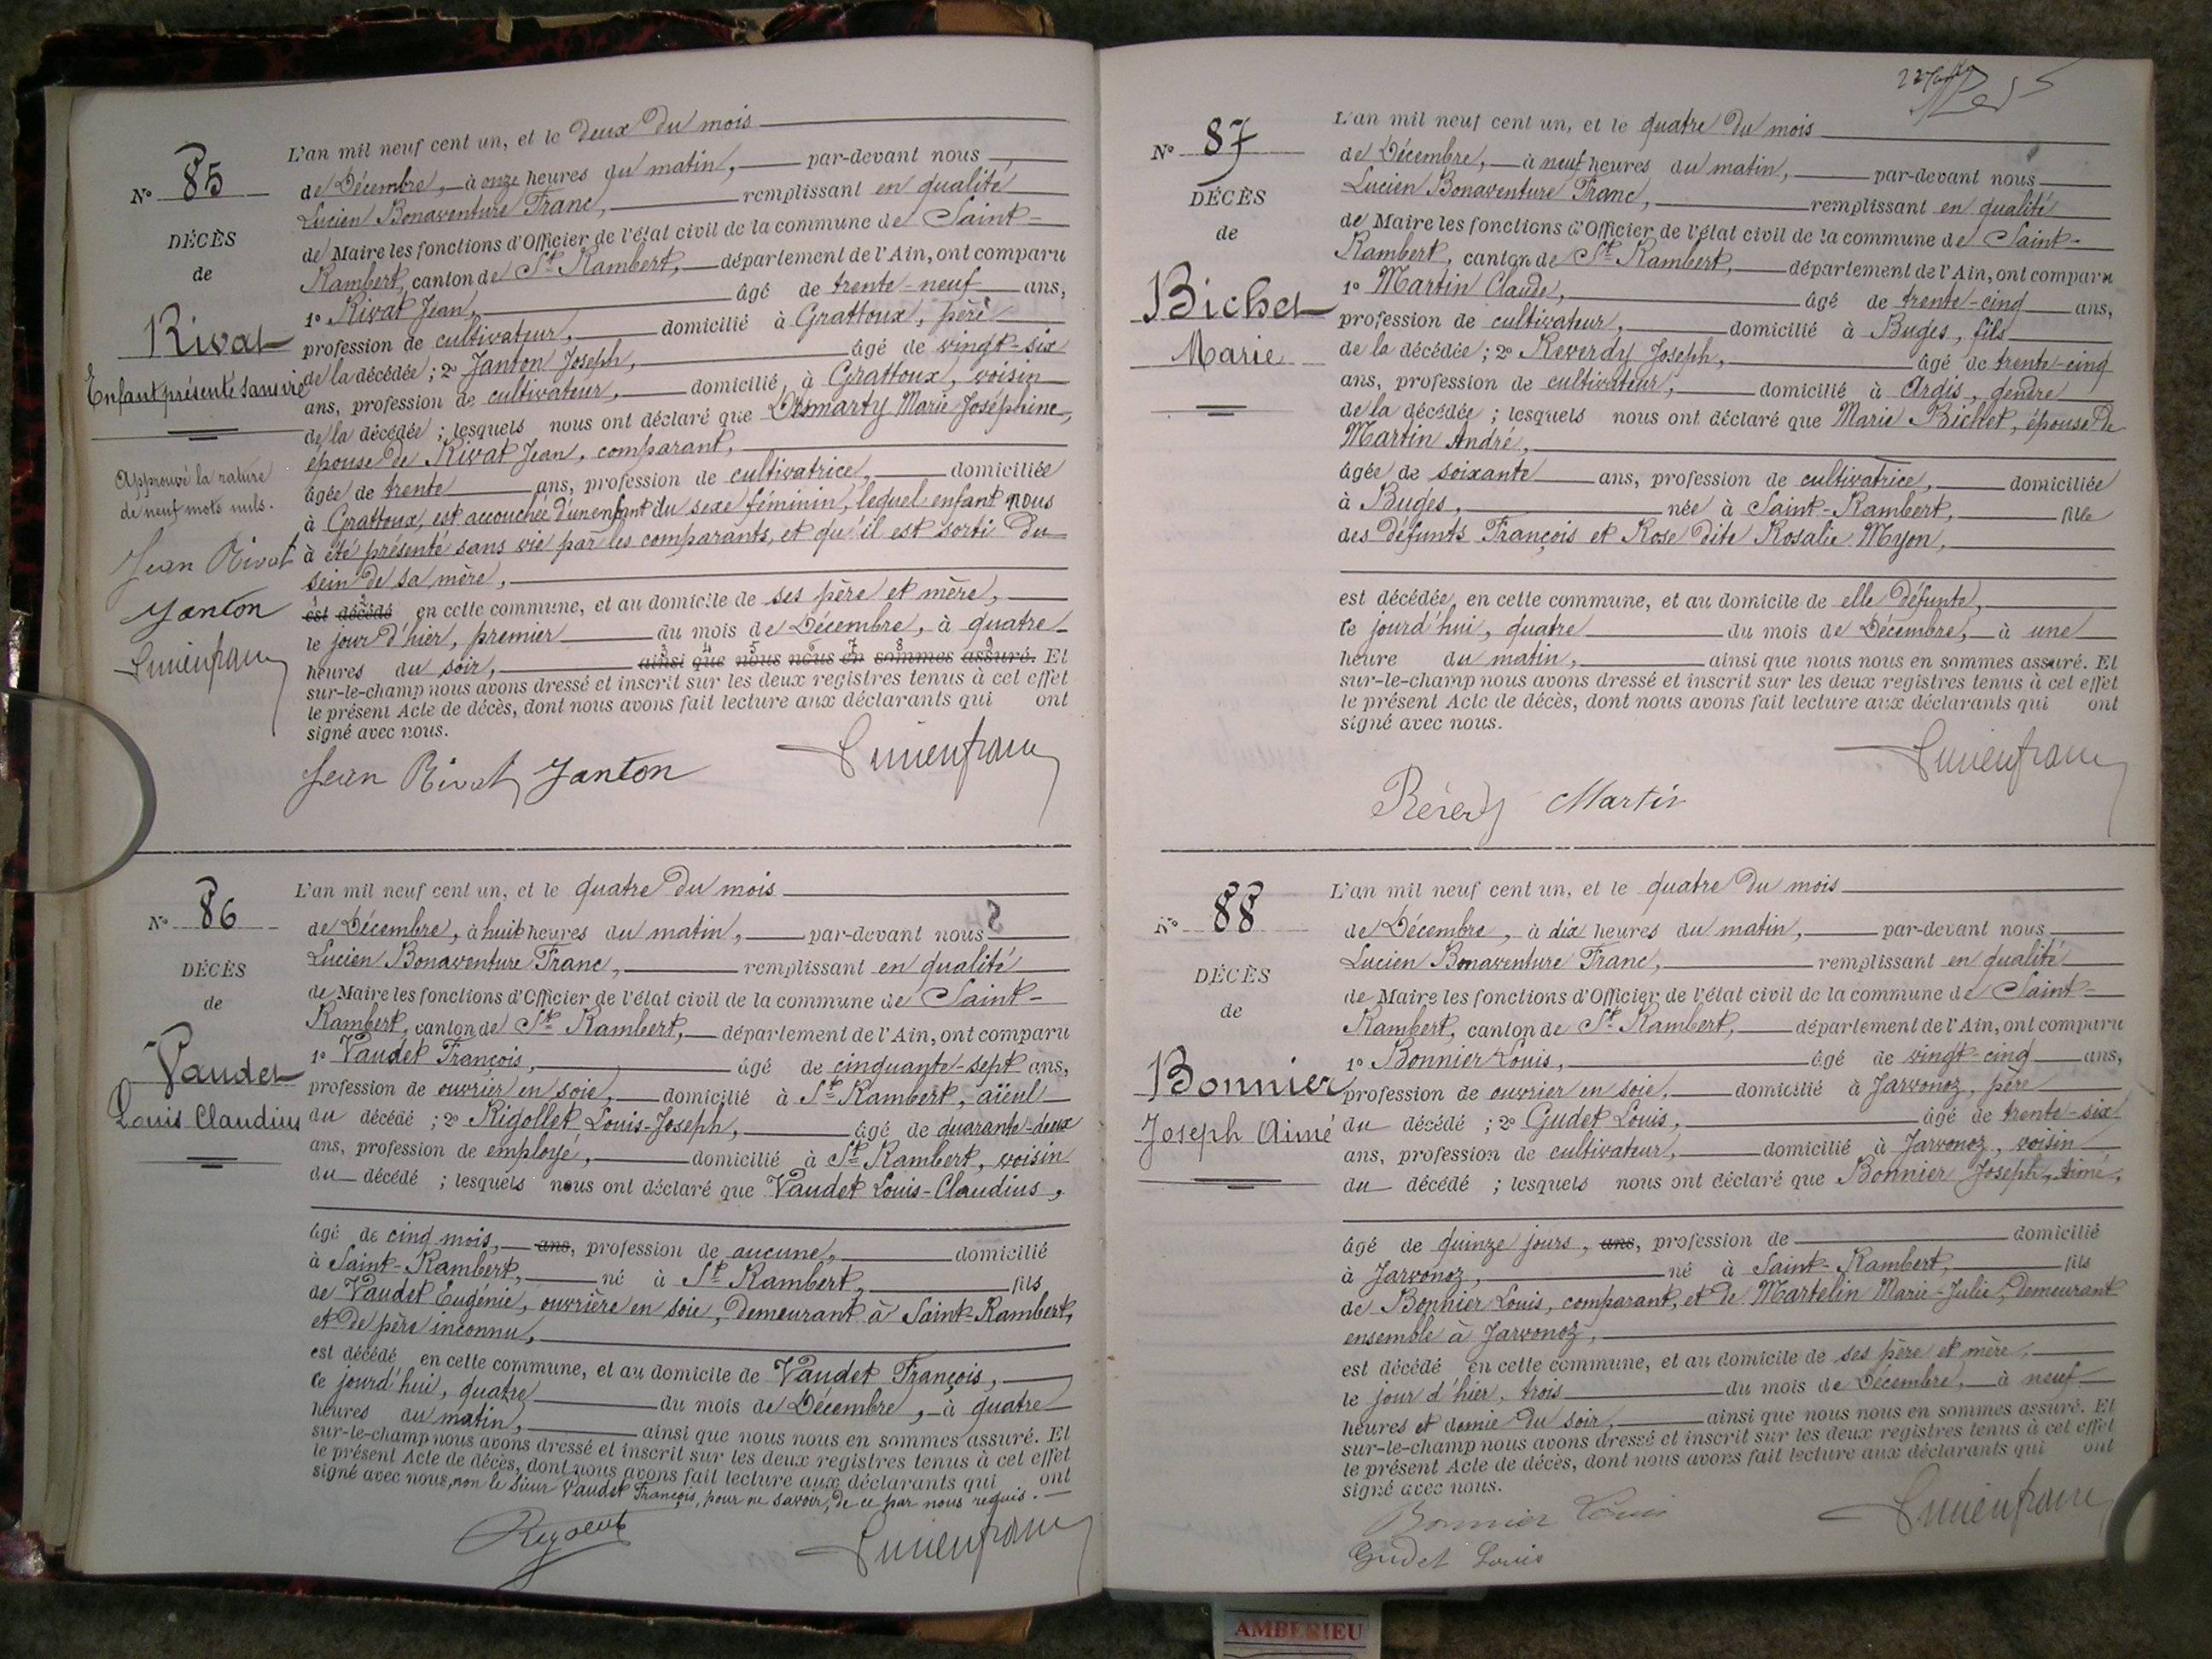 N° 85
DÉCÈS
de
Rivat
Enfant présenté sans vie
Approuvé la rature
de neuf mots nuls.
Jean Rivat
Janton
Lucien franc
L'an mil neuf cent un, et le deux du mois
de Décembre, à onze heures du matin, par-devant nous
Lucien Bonaventure Franc, remplissant en qualité
de Maire les fonctions d'Officier de l'état civil de la commune de Saint-
Rambert, canton de St Rambert, département de l'Ain, ont comparu
1° Rivat Jean, âgé de trente-neuf ans,
profession de cultivateur, domicilié à Grattoux, père
de la décédée ; 2° Janton Joseph, âgé de vingt-six
ans, profession de cultivateur, domicilié à Grattoux, voisin
de la décédée ; lesquels nous ont déclaré que Marie Joséphine,
épouse de Rivat Jean, comparant,
âgée de trente ans, profession de cultivatrice, domiciliée
à Grattoux, est accouchée d'un enfant du sexe féminin, lequel enfant nous
à été présenté sans vie par les comparants, et qu'il est sorti du
sein de sa mère,
1 2
est décédé en cette commune, et au domicile de ses père et mère,
le jour d'hier, premier du mois de Décembre, à quatre
3 4 5 6 7 8 9
heures du soir, ainsi que nous nous en sommes assuré. Et
sur-le-champ nous avons dressé et inscrit sur les deux registres tenus à cet effet
le présent Acte de décès, dont nous avons fait lecture aux déclarants qui ont
signé avec nous.
Jean Rivat Janton Lucien franc
N° 86
DÉCÈS
de
Vaudet
Louis Claudius
L'an mil neuf cent un, et le quatre du mois
de Décembre, à huit heures du matin, par-devant nous
Lucien Bonaventure Franc, remplissant en qualité
de Maire les fonctions d'Officier de l'état civil de la commune de Saint-
Rambert, canton de St Rambert, département de l'Ain, ont comparu
1° Vaudet François, âgé de cinquante-sept ans,
profession de ouvrier en soie, domicilié à St Rambert, aïeul
du décédé ; 2° Rigollet Louis-Joseph, âgé de quarante-deux
ans, profession de employé, domicilié à St Rambert, voisin
du décédé ; lesquels nous ont déclaré que Vaudet Louis-Claudius,
âgé de cinq mois, ans, profession de aucune, domicilié
à Saint-Rambert, né à St Rambert, fils
de Vaudet Eugénie, ouvrière en soie, demeurant à Saint-Rambert,
et de père inconnu,
est décédé en cette commune, et au domicile de Vaudet François,
ce jourd'hui, quatre du mois de Décembre, à quatre
heures du matin, ainsi que nous nous en sommes assuré. Et
sur-le-champ nous avons dressé et inscrit sur les deux registres tenus à cet effet
le présent Acte de décès, dont nous avons fait lecture aux déclarants qui ont
signé avec nous, non le sieur Vaudet François, pour ne savoir, de ce par nous requis.
Rigollet Lucien franc
N° 87
DÉCÈS
de
Bichet
Marie
L'an mil neuf cent un, et le quatre du mois
de Décembre, à neuf heures du matin, par-devant nous
Lucien Bonaventure Franc, remplissant en qualité
de Maire les fonctions d'Officier de l'état civil de la commune de Saint-
Rambert, canton de St Rambert, département de l'Ain, ont comparu
1° Martin Claude, âgé de trente-cinq ans,
profession de cultivateur, domicilié à Buges, fils
de la décédée ; 2° Reverdy Joseph, âgé de trente-cinq
ans, profession de cultivateur, domicilié à Argis, gendre
de la décédée ; lesquels nous ont déclaré que Marie Bichet, épouse de
Martin André,
âgée de soixante ans, profession de cultivatrice, domiciliée
à Buges, née à Saint-Rambert, fille
des défunts François et Rose dite Rosalie Myon,
est décédée en cette commune, et au domicile de elle défunte,
ce jourd'hui, quatre du mois de Décembre, à une
heure du matin, ainsi que nous nous en sommes assuré. Et
sur-le-champ nous avons dressé et inscrit sur les deux registres tenus à cet effet
le présent Acte de décès, dont nous avons fait lecture aux déclarants qui ont
signé avec nous.
Lucien franc
Réverdy Martin
N° 88
DÉCÈS
de
Bonnier
Joseph Aimé
L'an mil neuf cent un, et le quatre du mois
de Décembre, à dix heures du matin, par-devant nous
Lucien Bonaventure Franc, remplissant en qualité
de Maire les fonctions d'Officier de l'état civil de la commune de Saint-
Rambert, canton de St Rambert, département de l'Ain, ont comparu
1° Bonnier Louis, âgé de vingt-cinq ans,
profession de ouvrier en soie, domicilié à Javonoz, père
du décédé ; 2° Gudet Louis, âgé de trente-six
ans, profession de cultivateur, domicilié à Jarvonoz, voisin
du décédé ; lesquels nous ont déclaré que Bonnier Joseph, Aimé,
âgé de quinze jours, ans, profession de domicilié
à Jarvonoz, né à Saint-Rambert, fils
de Bonnier Louis, comparant, et de Martelin Marie-Julie, demeurant
ensemble à Jarvonoz,
est décédé en cette commune, et au domicile de ses père et mère,
le jour d'hier, trois du mois de Décembre, à neuf
heures et demie du soir, ainsi que nous nous en sommes assuré. Et
sur-le-champ nous avons dressé et inscrit sur les deux registres tenus à cet effet
le présent Acte de décès, dont nous avons fait lecture aux déclarants qui ont
signé avec nous.
Bonnier Louis Lucien franc
Gudet Louis
AMBERIEU